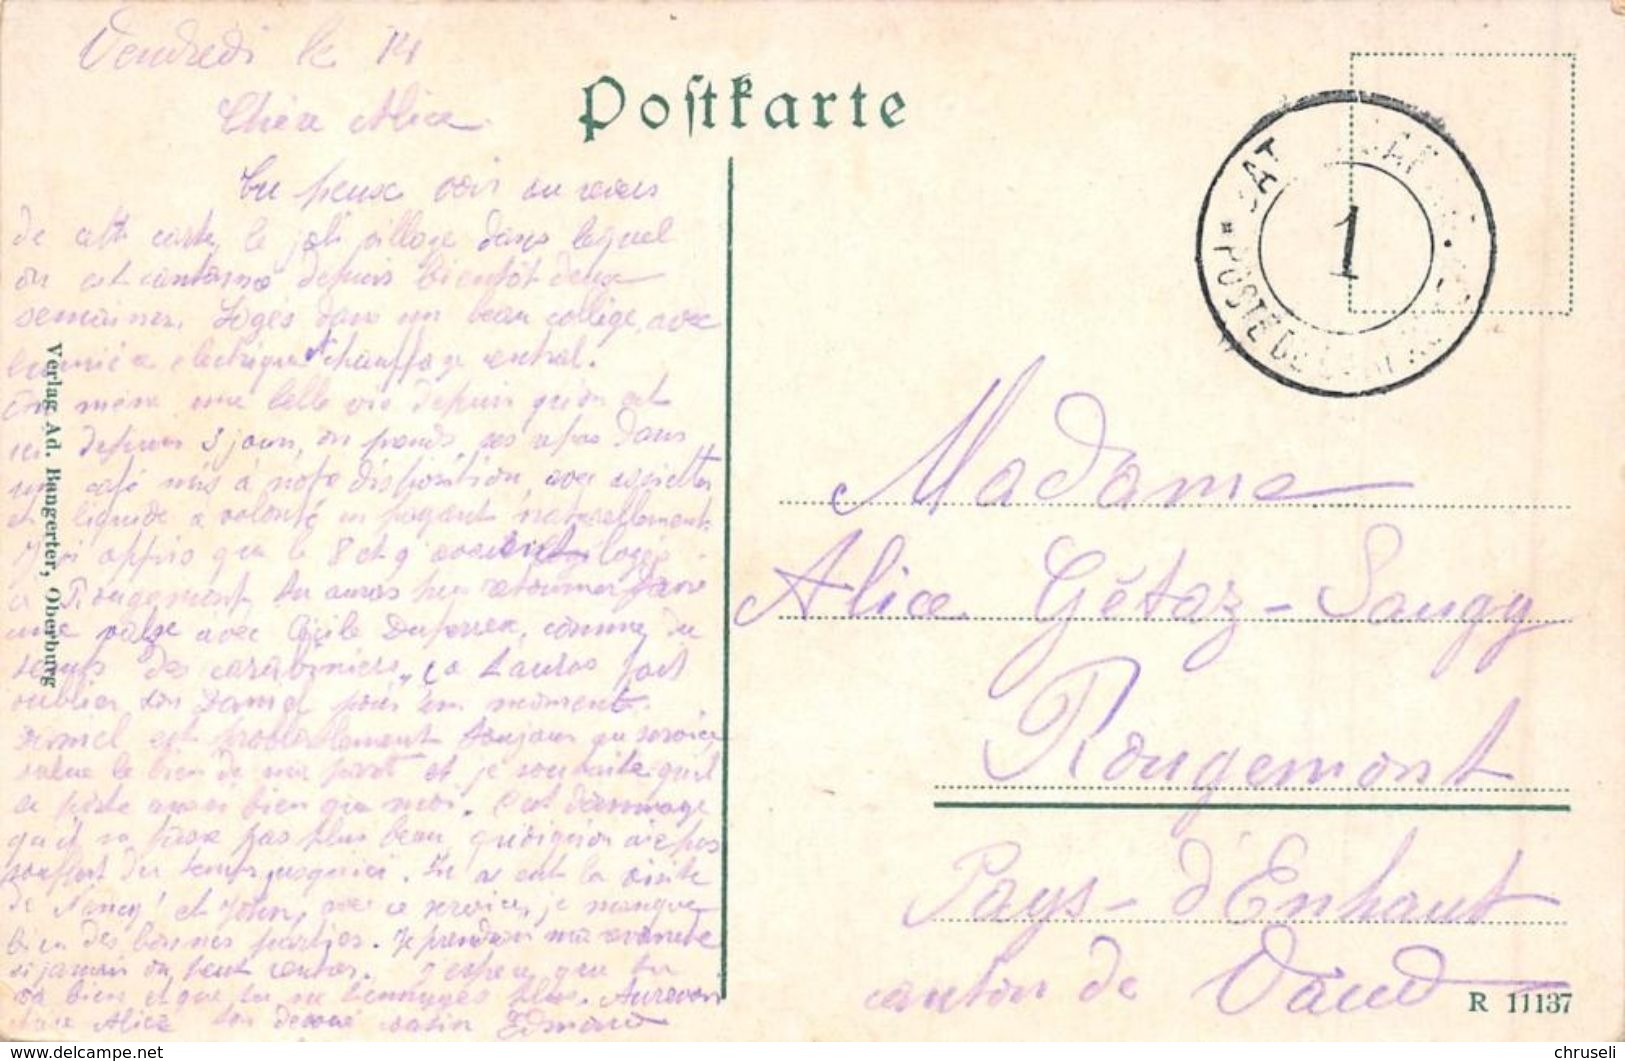 Vendredi le 14
Chère Alice
Tu peux voir au revers
de cette carte, le joli village dans lequel
on est cantonné depuis bientôt deux
semaines. Logés dans un beau collège, avec
lumière électrique et chauffage central.
On mène une belle vie depuis qu'on est
ici depuis 3 jours, on prends ses repas dans
un café mis à notre disposition, avec assiettes
et liquide à volonté en payant naturellement.
J'ai appris que le 8 et 9 avaient logés
à Rougemont, tu auras pu retourner faire
une valse avec Cécile, comme du
temps des carabiniers, ça t'auras fait
oublier ton Daniel pour un moment.
Daniel est probablement toujours au service,
salue le bien de ma part et je souhaite qu'il
se porte aussi bien que moi. C'est dommage
qu'il ne fasse pas plus beau, quoiqu'on aie pas
souffert du temps jusqu'ici. Tu as eut la visite
de Nancy et John, avec ce service, je manque
bien des bonnes parties. Je prendrai ma revanche
si jamais on peut rentrer. J'espère que tu
va bien et que tu ne t'ennuyes plus. Aurevoir
chère Alice ton dévoué cousin Edmond
Postkarte
Verlag Ad. Bangerter, Oberburg
1
POSTE DE CAMPAGNE
Madame
Alice Gétaz-Saugy
Rougemont
Pays-d'Enhaut
canton de Vaud
R 11137
chruseli